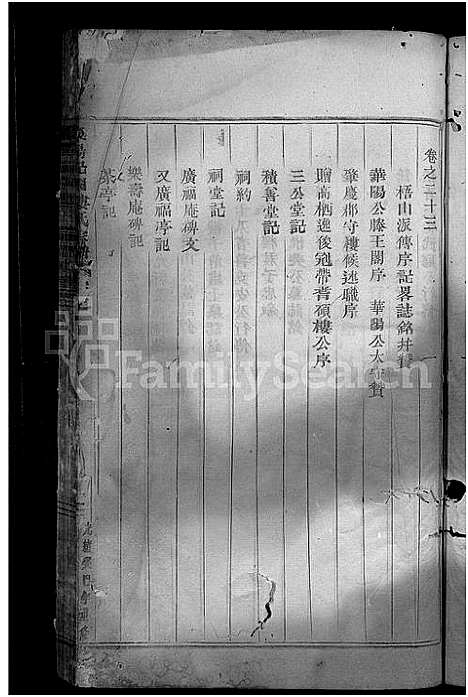 卷之二十三
梧山派傳序記畧誌銘并贊
華陽公滕王閣序 華陽公大守贊
肇慶郡守樓候述職序
贈高栖遯後冠帶耆碩樓公序
三公堂記
積善堂記
祠約
祠堂記
廣福庵碑文
又廣福亭記
樂壽庵碑記
茶亭記
FamilySearch